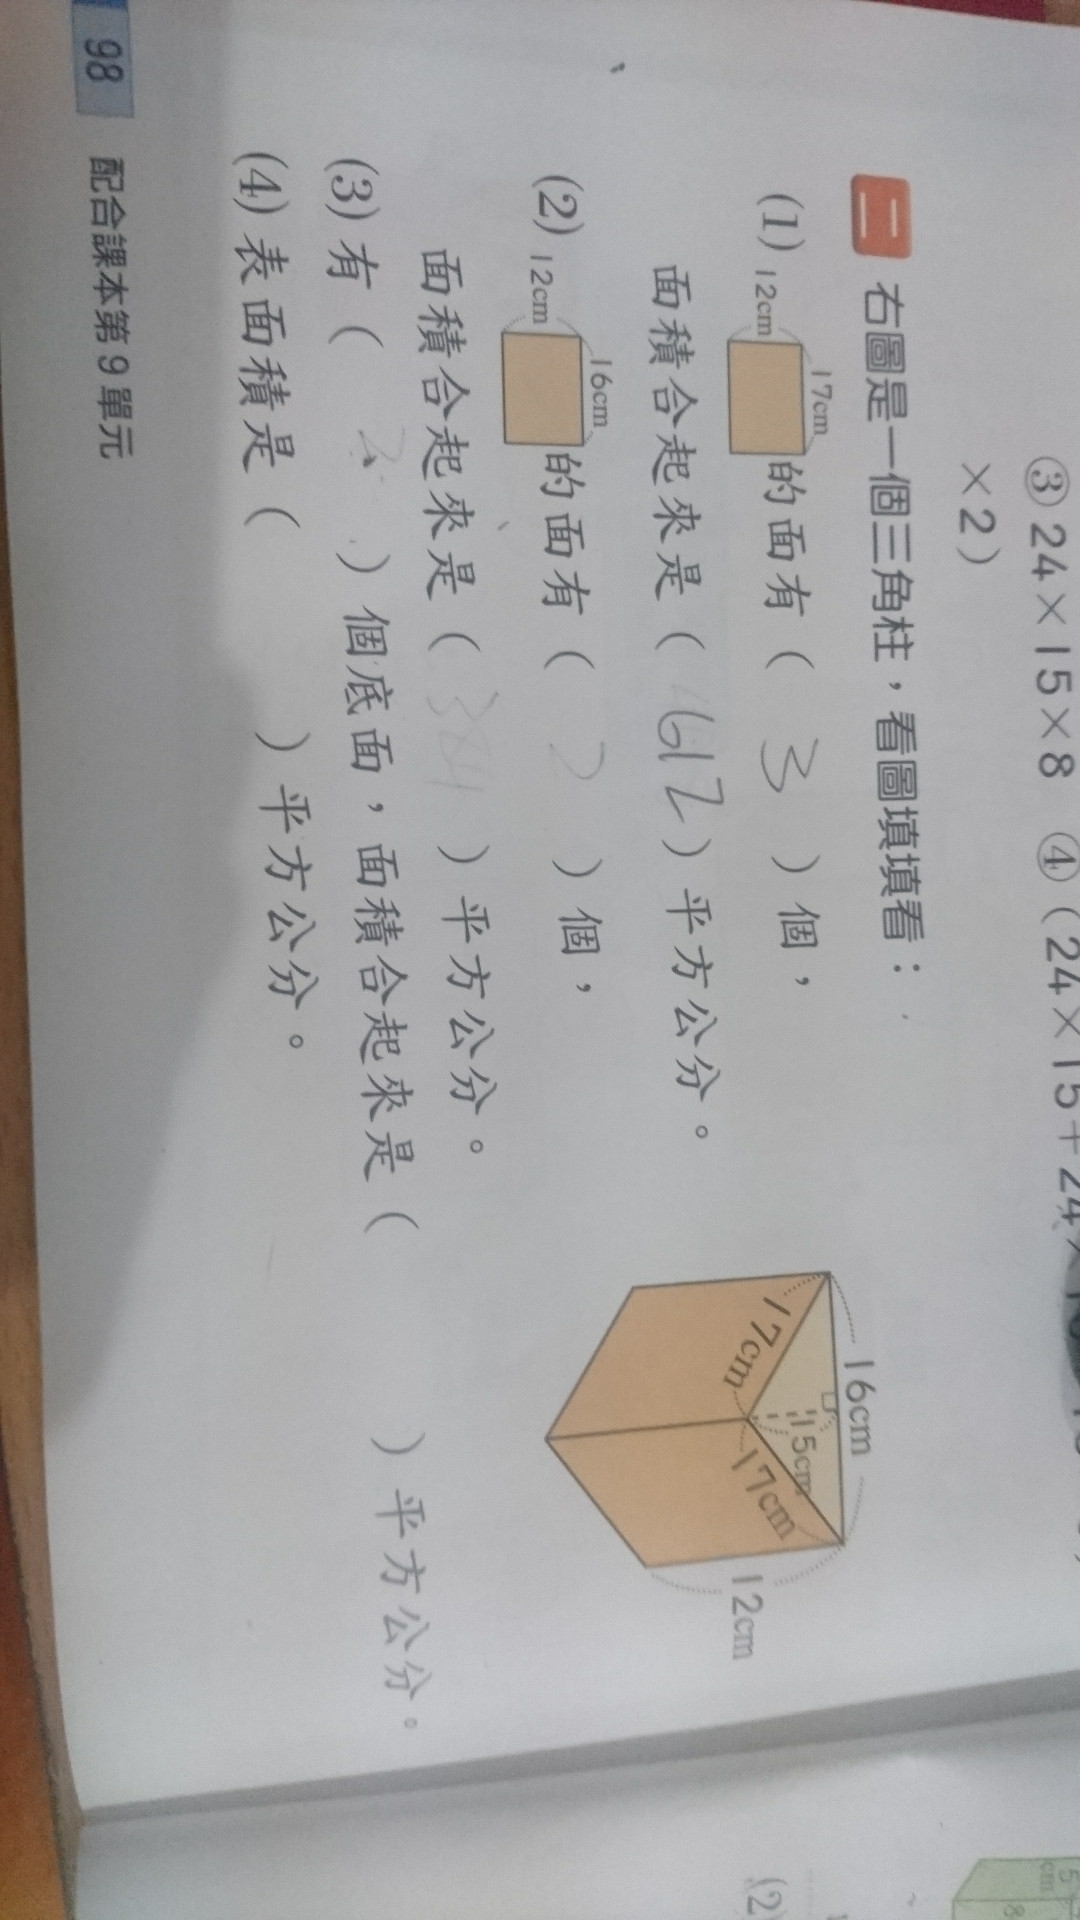 ③ 24×15×8 ④（24×15＋24×
×2）
二 右圖是一個三角柱，看圖填填看：
(1) 12cm 17cm 的面有（ 3 ）個，
面積合起來是（ 612 ）平方公分。
(2) 12cm 16cm 的面有（ 2 ）個，
面積合起來是（ 384 ）平方公分。
(3) 有（ 2 ）個底面，面積合起來是（ ）平方公分。
(4) 表面積是（ ）平方公分。
16cm
17cm
15cm
17cm
12cm
98 配合課本第9單元
5
cm
8
(2)